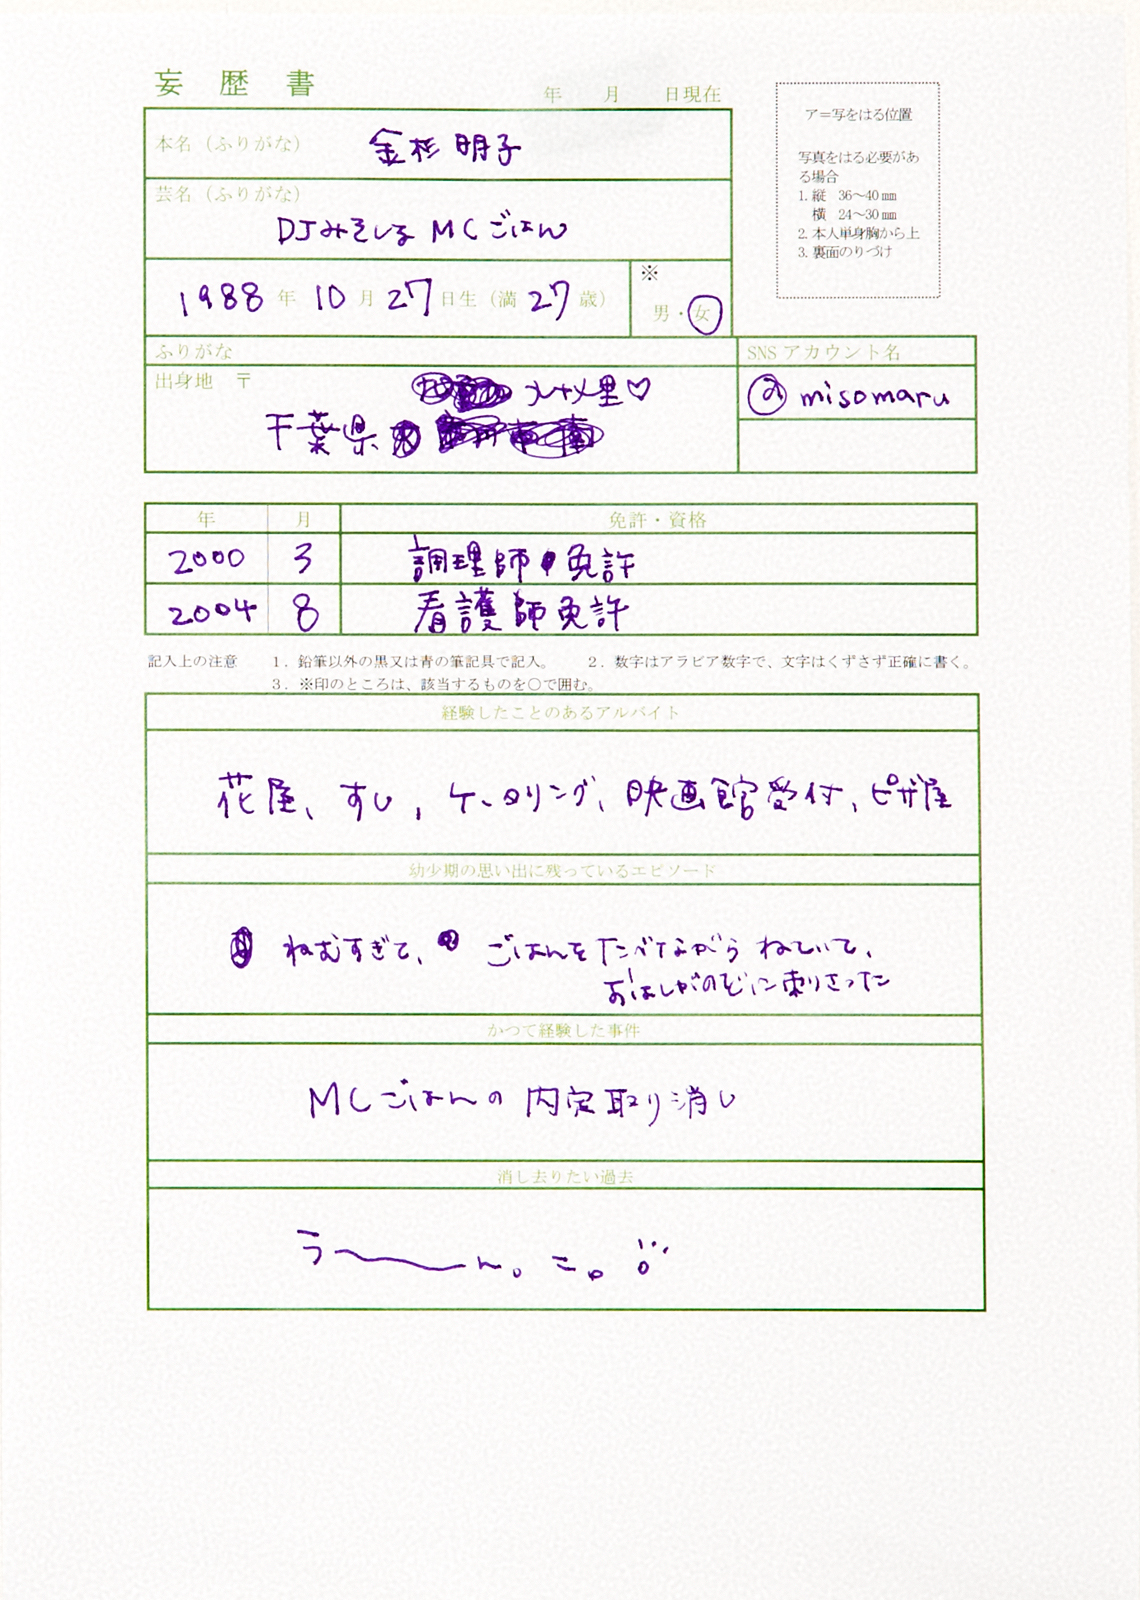 妄歴書
年 月 日現在
ア=写をはる位置
写真をはる必要があ
る場合
1. 縦 36〜40㎜
横 24〜30㎜
2. 本人単身胸から上
3. 裏面のりづけ
本名（ふりがな） 金杉 明子
芸名（ふりがな）
DJみそしる MCごはん
1988 年 10 月 27 日生（満 27 歳）
※
男・女
ふりがな
SNS アカウント名
出身地 〒
里♡
千葉県
@ misomaru
年 月 免許・資格
2000 3 調理師免許
2004 8 看護師免許
記入上の注意 1．鉛筆以外の黒又は青の筆記具で記入。 2．数字はアラビア数字で、文字はくずさず正確に書く。
3．※印のところは、該当するものを○で囲む。
経験したことのあるアルバイト
花屋、すし、ケータリング、映画館受付、ピザ屋
幼少期の思い出に残っているエピソード
ねむすぎて、 ごはんをたべながら ねていて、
おはしがのどに刺さった
かつて経験した事件
MCごはんの内定取り消し
消し去りたい過去
う〜ん。こ。